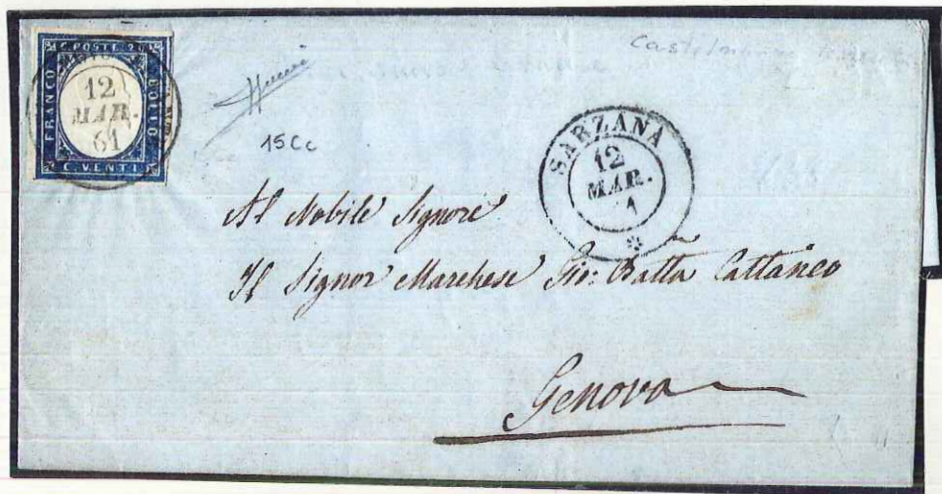 C. POSTE 20
FRANCO
BOLLO
C. VENTI
12
MAR.
61
15Cc
SARZANA
12
MAR.
1
Al Nobile Signore
Il Signor Marchese Gio: Batta Cattaneo
Genova